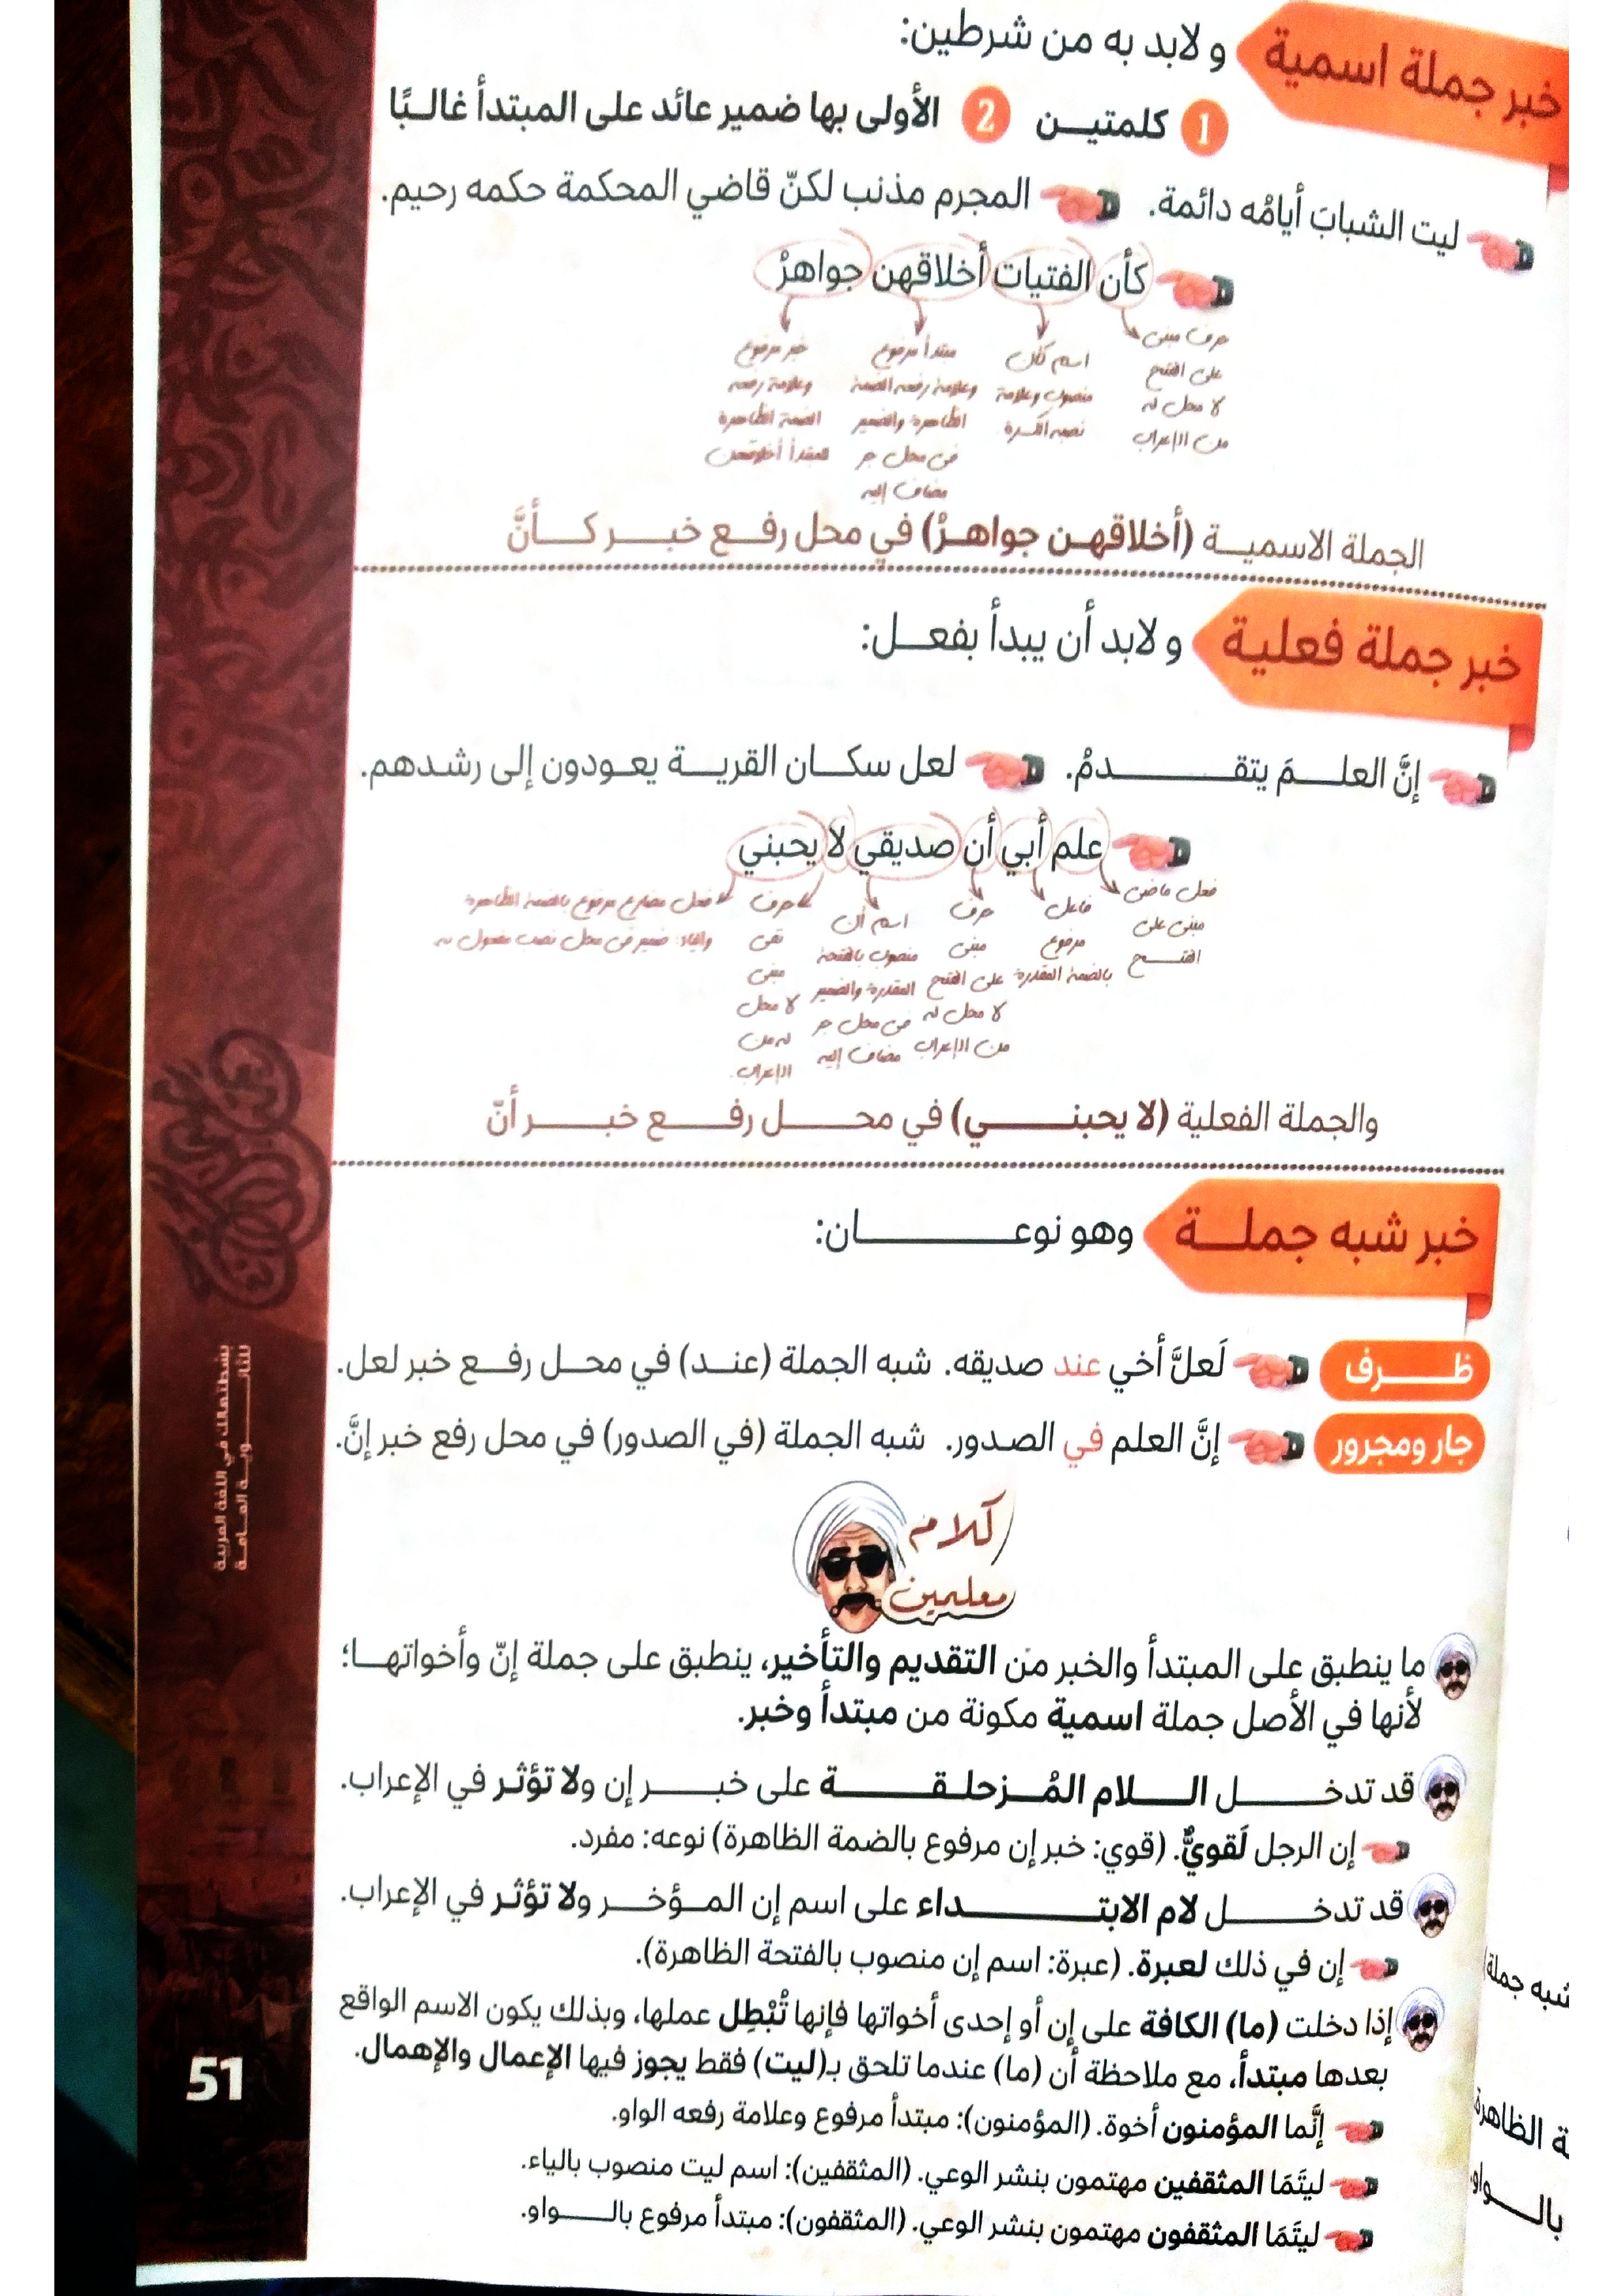 خبر جملة اسمية ولابد به من شرطين:
1 كلمتيـن 2 الأولى بها ضمير عائد على المبتدأ غالبًا
ليت الشبابَ أيامُه دائمة. المجرم مذنب لكنّ قاضي المحكمة حكمه رحيم.
كأن الفتيات أخلاقهن جواهرُ
حرف مبنى على الفتح لا محل له من الإعراب
اسم كأن منصوب وعلامة نصبه الكسرة
مبتدأ مرفوع وعلامة رفعه الضمة الظاهرة والضمير فى محل جر مضاف إليه
خبر مرفوع وعلامة رفعه الضمة الظاهرة للمبتدأ أخلاقهن
الجملة الاسمية (أخلاقهن جواهرُ) في محل رفع خبر كأنَّ
خبر جملة فعلية ولابد أن يبدأ بفعل:
إنَّ العلمَ يتقدمُ. لعل سكان القرية يعودون إلى رشدهم.
علم أبي أن صديقي لا يحبني
فعل ماضى مبنى على الفتح
فاعل مرفوع بالضمة المقدرة
حرف مبنى على الفتح لا محل له من الإعراب
اسم أن منصوب بالفتحة المقدرة والضمير فى محل جر مضاف إليه
حرف نفى مبنى لا محل له من الإعراب.
فعل مضارع مرفوع بالضمة الظاهرة والياء: ضمير فى محل نصب مفعول به
والجملة الفعلية (لا يحبني) في محل رفع خبر أنّ
خبر شبه جملة وهو نوعان:
ظرف لَعلَّ أخي عند صديقه. شبه الجملة (عند) في محل رفع خبر لعل.
جار ومجرور إنَّ العلم في الصدور. شبه الجملة (في الصدور) في محل رفع خبر إنَّ.
كلام
معلمين
ما ينطبق على المبتدأ والخبر من التقديم والتأخير، ينطبق على جملة إنّ وأخواتها؛
لأنها في الأصل جملة اسمية مكونة من مبتدأ وخبر.
قد تدخل اللام المُزحلقة على خبر إن ولا تؤثر في الإعراب.
إن الرجل لَقويٌّ. (قوي: خبر إن مرفوع بالضمة الظاهرة) نوعه: مفرد.
قد تدخل لام الابتداء على اسم إن المؤخر ولا تؤثر في الإعراب.
إن في ذلك لعبرة. (عبرة: اسم إن منصوب بالفتحة الظاهرة).
إذا دخلت (ما) الكافة على إن أو إحدى أخواتها فإنها تُبْطِل عملها، وبذلك يكون الاسم الواقع
بعدها مبتدأ، مع ملاحظة أن (ما) عندما تلحق بـ(ليت) فقط يجوز فيها الإعمال والإهمال.
إنَّما المؤمنون أخوة. (المؤمنون): مبتدأ مرفوع وعلامة رفعه الواو.
ليتَمَا المثقفين مهتمون بنشر الوعي. (المثقفين): اسم ليت منصوب بالياء.
ليتَمَا المثقفون مهتمون بنشر الوعي. (المثقفون): مبتدأ مرفوع بالواو.
في اللغة العربية
51
شبه جملة)
ة الظاهرة
بالواو